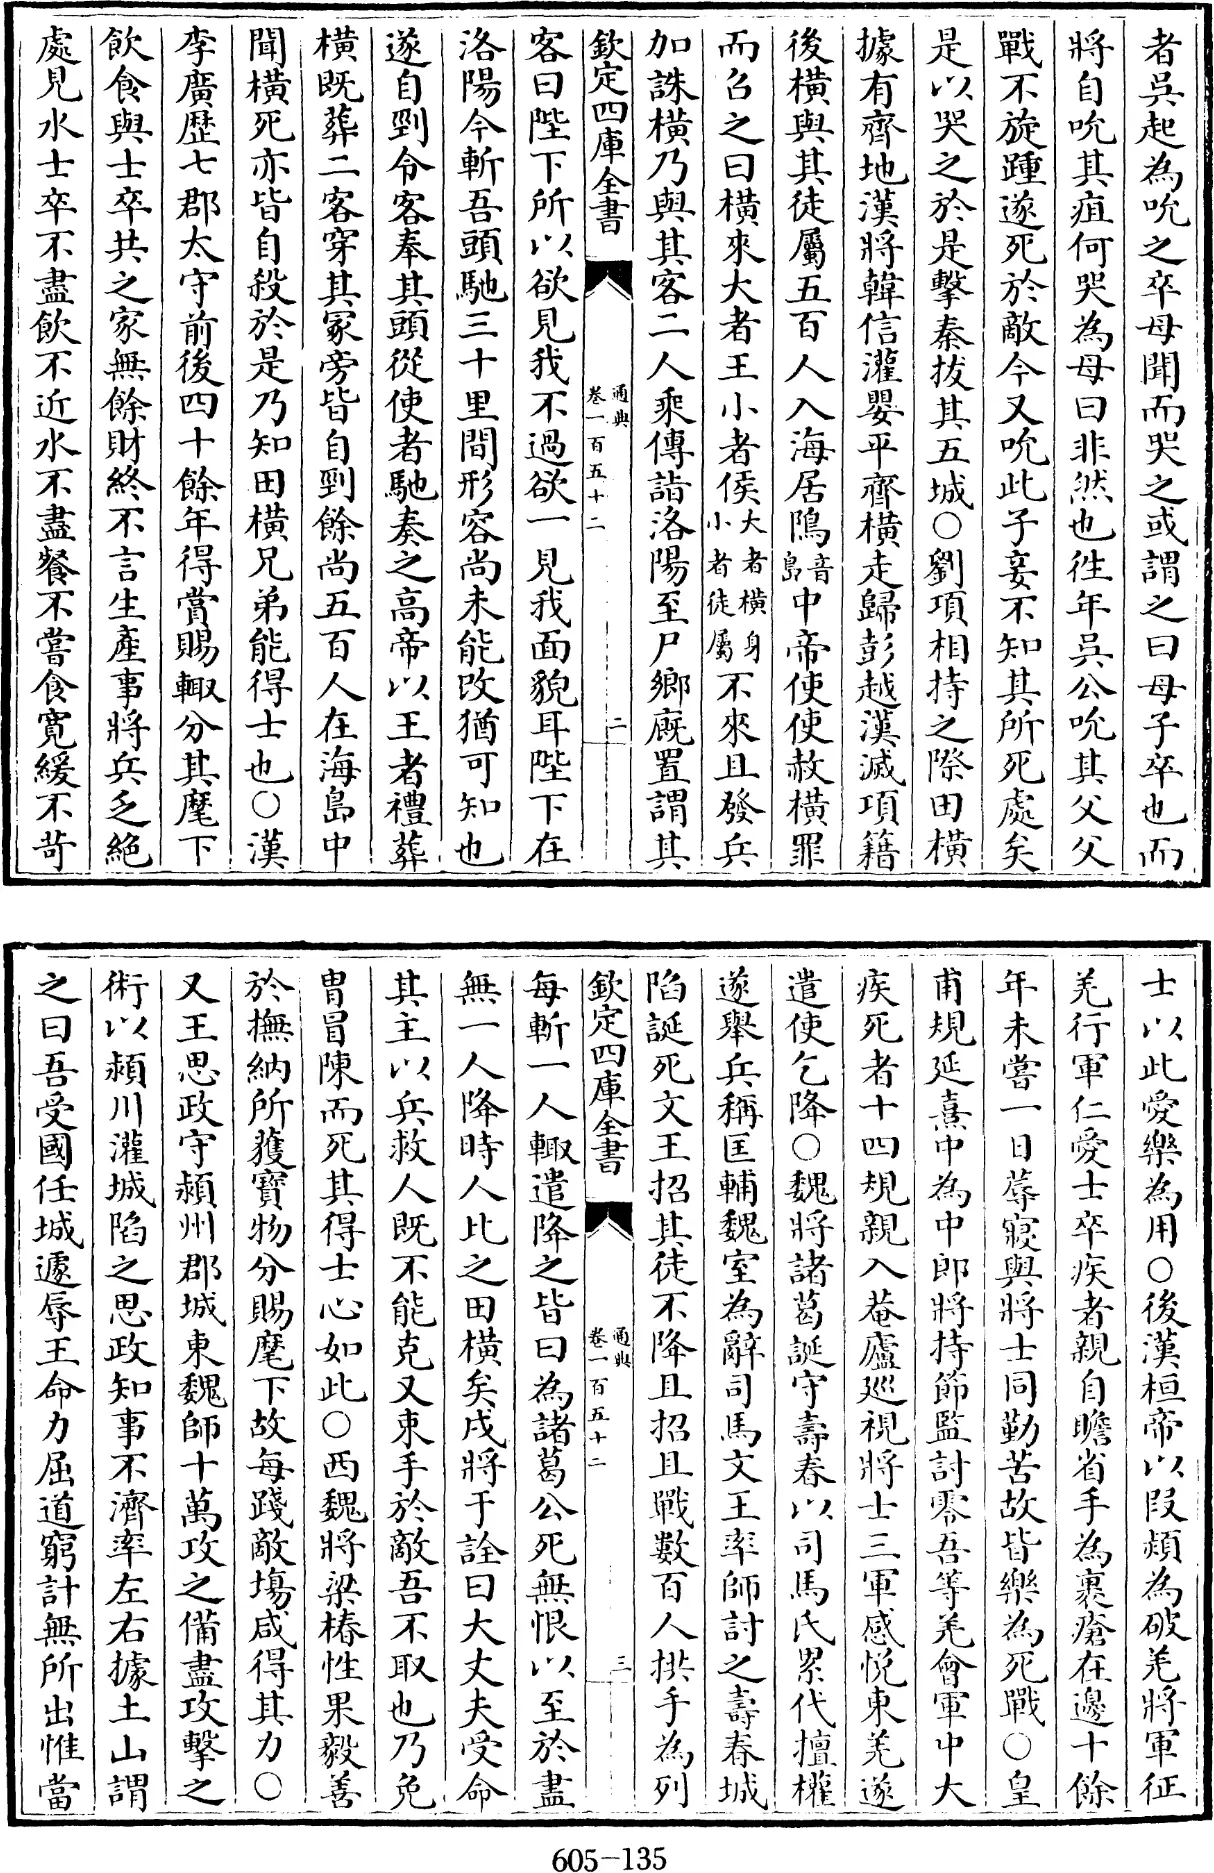 者吳起為吮之卒母聞而哭之或謂之曰母子卒也而
將自吮其疽何哭為母曰非然也往年吳公吮其父父
戰不旋踵遂死於敵今又吮此子妾不知其所死處矣
是以哭之於是擊秦拔其五城○劉項相持之際田橫
據有齊地漢將韓信灌嬰平齊橫走歸彭越漢滅項籍
後橫與其徒屬五百人入海居隝音島中帝使使赦橫罪
而召之曰橫來大者王小者侯大者橫身小者徒屬不來且發兵
加誅橫乃與其客二人乘傳詣洛陽至尸鄉廐置謂其
欽定四庫全書
通典
卷一百五十二
二
客曰陛下所以欲見我不過欲一見我面貌耳陛下在
洛陽今斬吾頭馳三十里間形容尚未能改猶可知也
遂自剄令客奉其頭從使者馳奏之高帝以王者禮葬
橫既葬二客穿其冢旁皆自剄餘尚五百人在海島中
聞橫死亦皆自殺於是乃知田橫兄弟能得士也○漢
李廣歷七郡太守前後四十餘年得賞賜輙分其麾下
飲食與士卒共之家無餘財終不言生產事將兵乏絕
處見水士卒不盡飲不近水不盡餐不嘗食寬緩不苛
士以此愛樂為用○後漢桓帝以段熲為破羌將軍征
羌行軍仁愛士卒疾者親自瞻省手為裹瘡在邊十餘
年未嘗一日蓐寢與將士同勤苦故皆樂為死戰○皇
甫規延熹中為中郎將持節監討零吾等羌會軍中大
疾死者十四規親入菴廬巡視將士三軍感悅東羌遂
遣使乞降○魏將諸葛誕守壽春以司馬氏累代擅權
遂舉兵稱匡輔魏室為辭司馬文王率師討之壽春城
陷誕死文王招其徒不降且招且戰數百人拱手為列
欽定四庫全書
通典
卷一百五十二
三
每斬一人輙遣降之皆曰為諸葛公死無恨以至於盡
無一人降時人比之田橫矣戍將于詮曰大丈夫受命
其主以兵救人既不能克又束手於敵吾不取也乃免
胄冒陳而死其得士心如此○西魏將梁椿性果毅善
於撫納所獲寶物分賜麾下故每踐敵塲咸得其力○
又王思政守潁州郡城東魏師十萬攻之備盡攻擊之
術以潁川灌城陷之思政知事不濟率左右據土山謂
之曰吾受國任城遽辱王命力屈道窮計無所出惟當
605-135